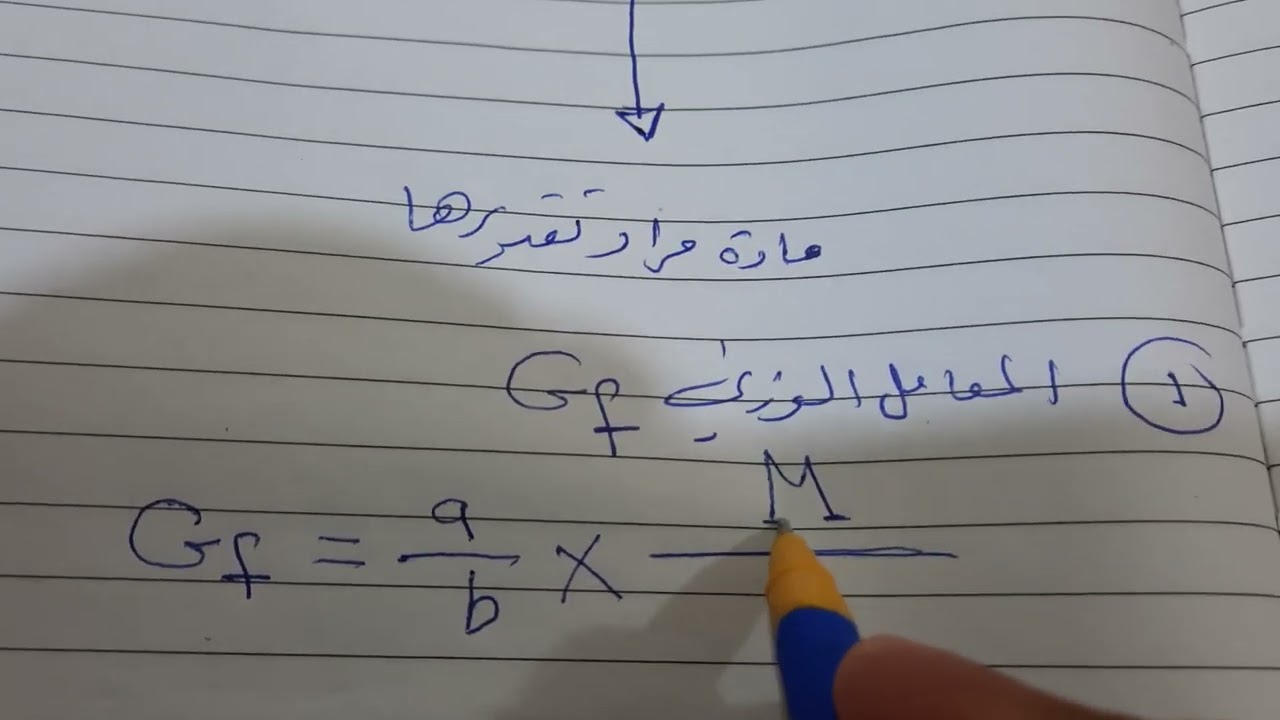 مادة مراد تقديرها
① المعامل الوزني Gf
Gf = a/b × M